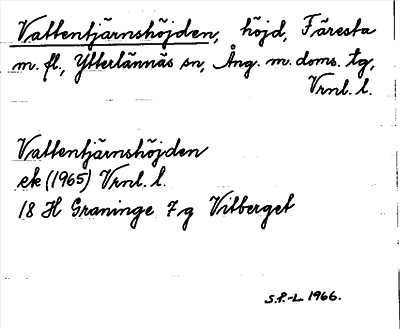 Vattentjärnshöjden, höjd, Färesta
m. fl., Ytterlännäs sn, Ång. m. doms. tg,
Vrnl. l.
Vattentjärnshöjden
ek (1965) Vrnl. l.
18 H Graninge 7g Vitberget
S.P.-L 1966.